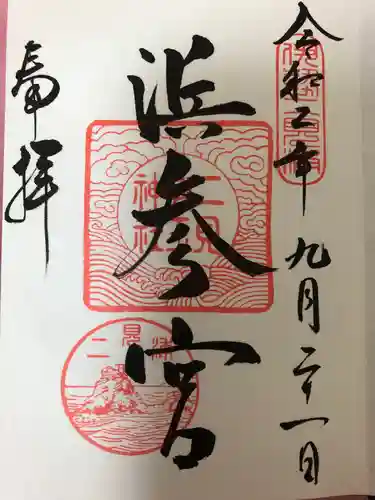 令和二年九月二十一日
浜参宮
奉拝
伊勢二見浦
二見
興玉
神社
二見浦